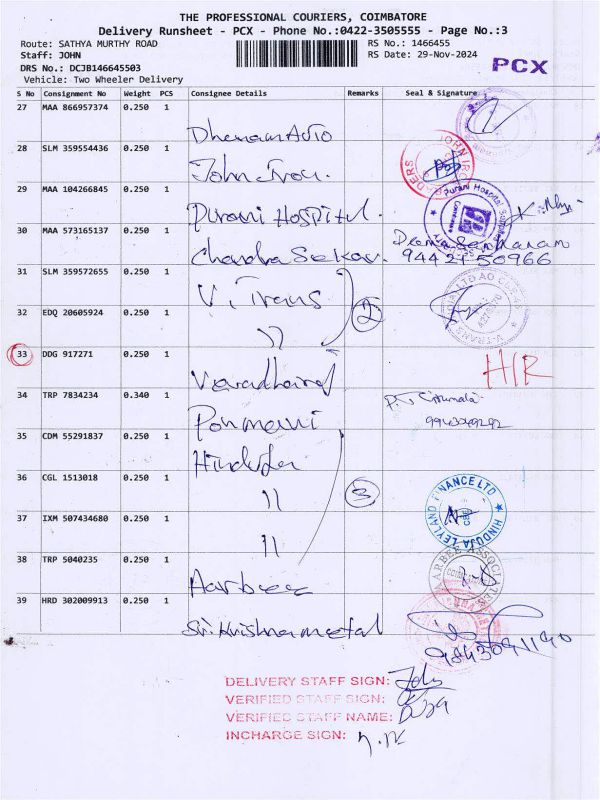 THE PROFESSIONAL COURIERS, COIMBATORE
Delivery Runsheet - PCX - Phone No.:0422-3505555 - Page No.:3
Route: SATHYA MURTHY ROAD
RS No.: 1466455
Staff: JOHN
RS Date: 29-Nov-2024
DRS No.: DCJB146645503
PCX
Vehicle: Two Wheeler Delivery
S No Consignment No Weight PCS Consignee Details Remarks Seal & Signature
27 MAA 866957374 0.250 1
28 SLM 359554436 0.250 1 John Iron.
29 MAA 104266845 0.250 1 Purani Hospitul.
Purani Hospital Supplies
30 MAA 573165137 0.250 1 Chandra Sekar
94421 50966
31 SLM 359572655 0.250 1 V. Trans 2
32 EDQ 20605924 0.250 1 "
33 DDG 917271 0.250 1
34 TRP 7834234 0.340 1 Ponmani
35 CDM 55291837 0.250 1
36 CGL 1513018 0.250 1 " 3
HINDUJA LEYLAND FINANCE LTD
37 IXM 507434680 0.250 1 "
38 TRP 5040235 0.250 1 Aarbee
AARBEE ASSOCIATES
39 HRD 302009913 0.250 1 Sri Krishna metal
DELIVERY STAFF SIGN:
VERIFIED STAFF SIGN:
VERIFIED STAFF NAME:
INCHARGE SIGN: